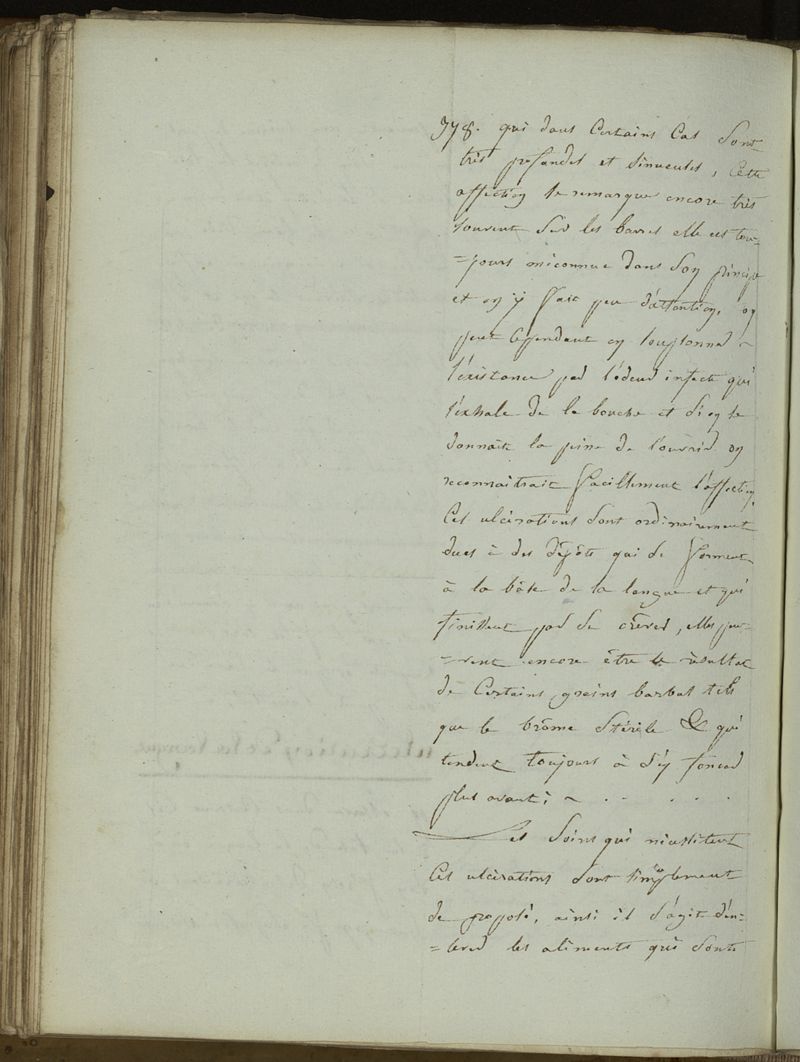 378. qui dans Certains Cas Sont
très profondes et sinueuses, Cette
affection se remarque encore très
souvent sur les barres elle est tou-
=jours méconnue dans son principe
et on y fait peu d'attention, on
peut Cependant en soupçonner
l'existance par l'odeur infecte qui
s'exhale de la bouche et si on se
donnait la peine de l'ouvrir on
reconnaîtrait facillement l'affection
Ces ulcérations sont ordinairement
dues à des dépôts qui se forment
à la bâse de la langue et qui
finissent par se crêver, elles peu-
=vent encore être le résultat
de Certains grains barbus tels
que le brôme Stérile & qui
tendent toujours à s'y foncer
plus avant; ~ . - . . .
Les Soins qui nécessitent
Ces ulcérations sont simplement
de propreté, ainsi il s'agit d'en-
=lever les aliments qui sont
ulcération de la langue